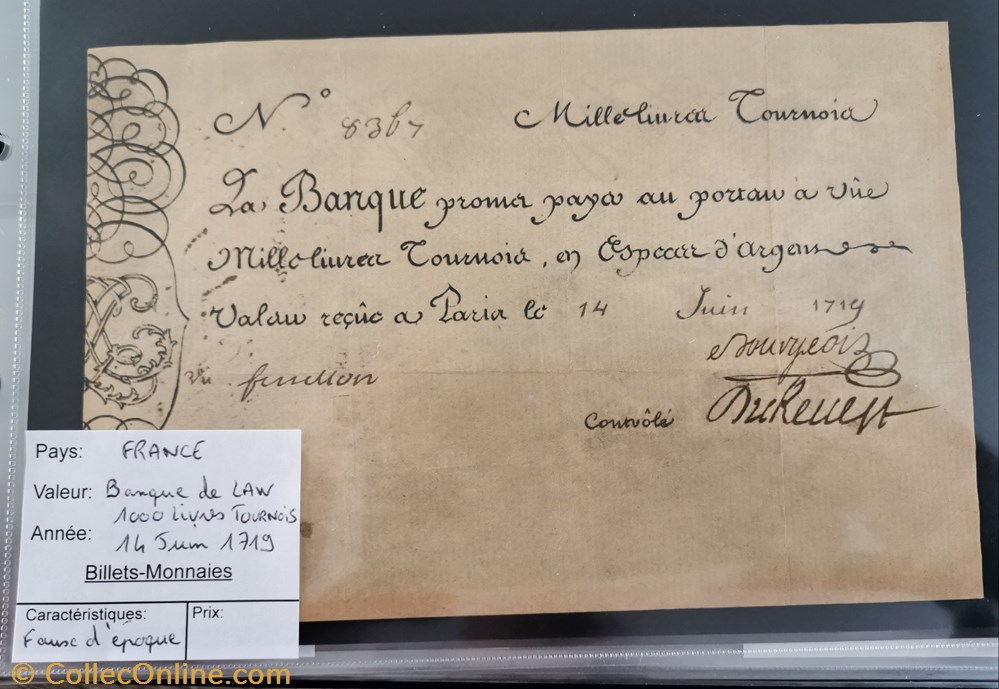 N° 8367 Mille livres Tournois
La Banque promet payer au porteur à vüe
Mille livres Tournois, en Especes d'argent
Valeur reçûe a Paris le 14 Juin 1719
Bourgeois
vu fenellon
Contrôlé Durevest
Pays: FRANCE
Valeur: Banque de LAW
1000 Livres TOURNOIS
Année: 14 Juin 1719
Billets-Monnaies
Caractéristiques: Prix:
Faux d'époque
© CollecOnline.com